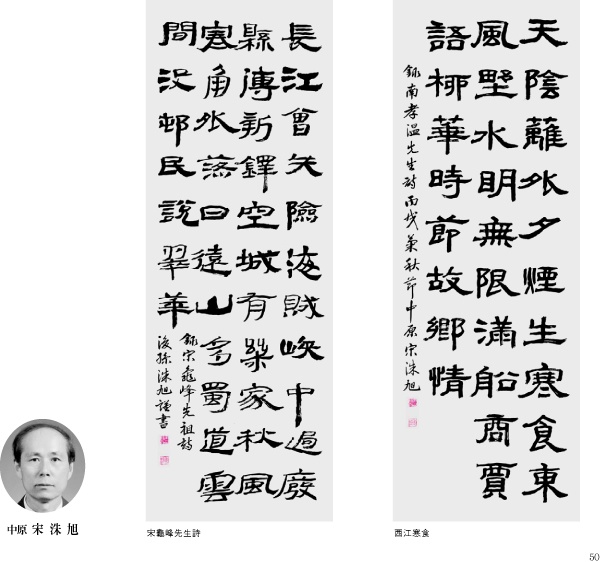 天陰籬外夕煙生寒食東
風野水明無限滿船商賈
語柳華時節故鄉情
錄南孝溫先生詩丙戌菊秋節中原宋洙旭
西江寒食
長江曾失險海賊峽中過廢
縣傳新鐸空城有幾家秋風
寒角外落日遠山多蜀道雲
間沒邨民說翠華
錄宋龜峰先祖詩
後孫洙旭謹書
宋龜峰先生詩
中原 宋 洙 旭
50